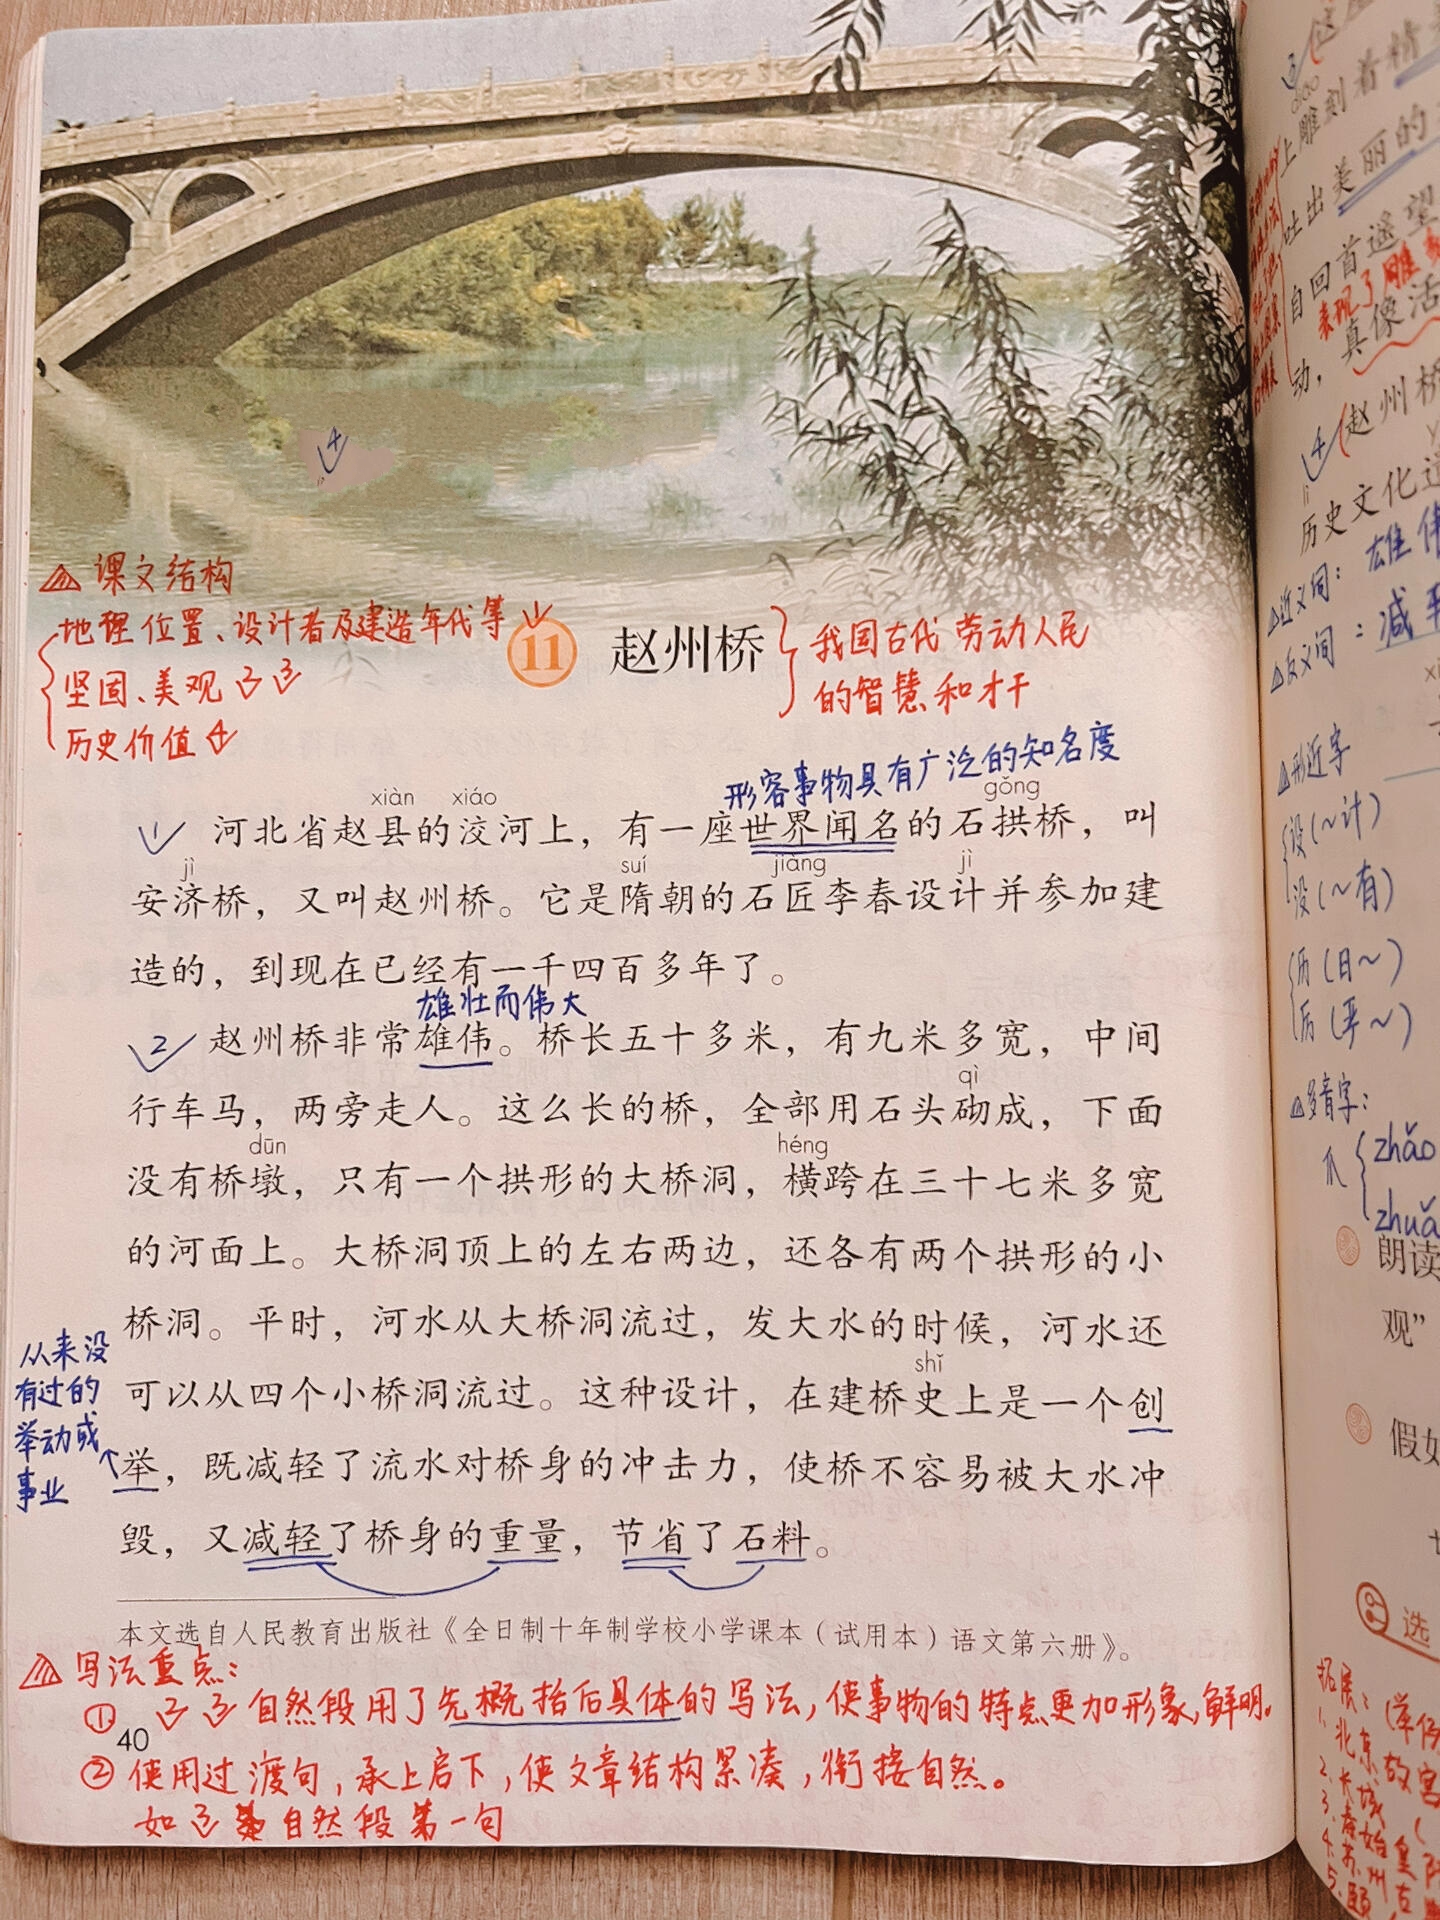 课文结构
地理位置、设计者及建造年代等 1
坚固、美观 2 3
历史价值 4
11 赵州桥
我国古代劳动人民
的智慧和才干
形容事物具有广泛的知名度
xiàn xiáo gǒng
1 河北省赵县的洨河上，有一座世界闻名的石拱桥，叫
jì suí jiàng jì
安济桥，又叫赵州桥。它是隋朝的石匠李春设计并参加建
造的，到现在已经有一千四百多年了。
雄壮而伟大
2 赵州桥非常雄伟。桥长五十多米，有九米多宽，中间
qì
行车马，两旁走人。这么长的桥，全部用石头砌成，下面
dūn héng
没有桥墩，只有一个拱形的大桥洞，横跨在三十七米多宽
的河面上。大桥洞顶上的左右两边，还各有两个拱形的小
桥洞。平时，河水从大桥洞流过，发大水的时候，河水还
shǐ
可以从四个小桥洞流过。这种设计，在建桥史上是一个创
举，既减轻了流水对桥身的冲击力，使桥不容易被大水冲
毁，又减轻了桥身的重量，节省了石料。
从来没
有过的
举动或
事业
本文选自人民教育出版社《全日制十年制学校小学课本（试用本）语文第六册》。
写法重点：
① 2 3 自然段用了先概括后具体的写法，使事物的特点更加形象，鲜明。
40
② 使用过渡句，承上启下，使文章结构紧凑，衔接自然。
如 3 自然段第一句
3
diāo
上雕刻着精
吐出美丽的
自回首遥望
表现了雕
动，真像活
4 赵州桥
lì
历史文化遗
近义词：雄伟
反义词：减轻
形近字
设（～计）
没（～有）
历（日～）
厉（严～）
多音字：
爪 zhǎo
zhuǎ
朗读
观”
假如
选
拓展：